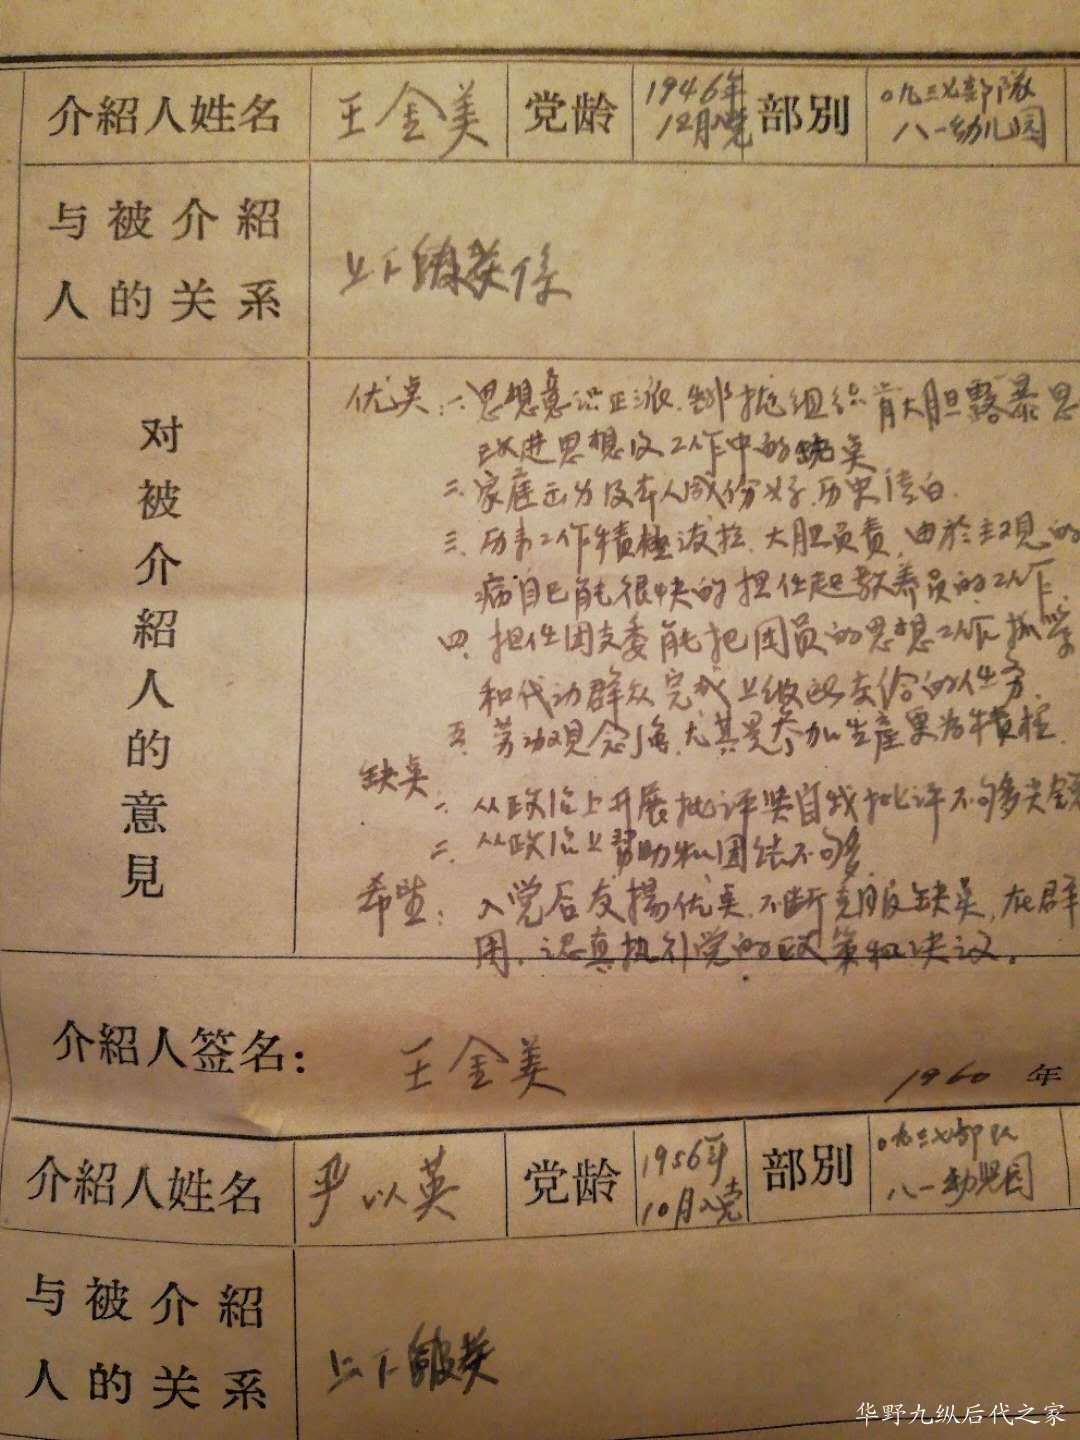 介紹人姓名 王金美 党龄 1946年 12月入党 部別 〇九三七部隊 八一幼儿园
与被介紹
人的关系
上下級关係
对被介紹人的意見
优点：一、思想意识正派，靠拢组织肯大胆露暴思
改进思想及工作中的缺点
二、家庭出身及本人成份好，历史清白
三、历来工作積極泼拉、大胆负责，由於主观的
病自己能很快的担任起教养员的工作
四、担任团支委能把团员的思想工作抓
和代动群众完成上级交给的任务
五、劳动观念强，尤其是参加生産更为積極
缺点
一、从政治上开展批评与自我批评不够多
二、从政治上帮助和团结不够
希望：入党后发揚优点，不断克服缺点，在群
用，认真执行党的政策和决议。
介紹人签名： 王金美
1960 年
介紹人姓名 尹以英 党龄 1956年 10月入党 部別 〇九三七部队 八一幼児园
与被介紹
人的关系
上下級关
华野九纵后代之家